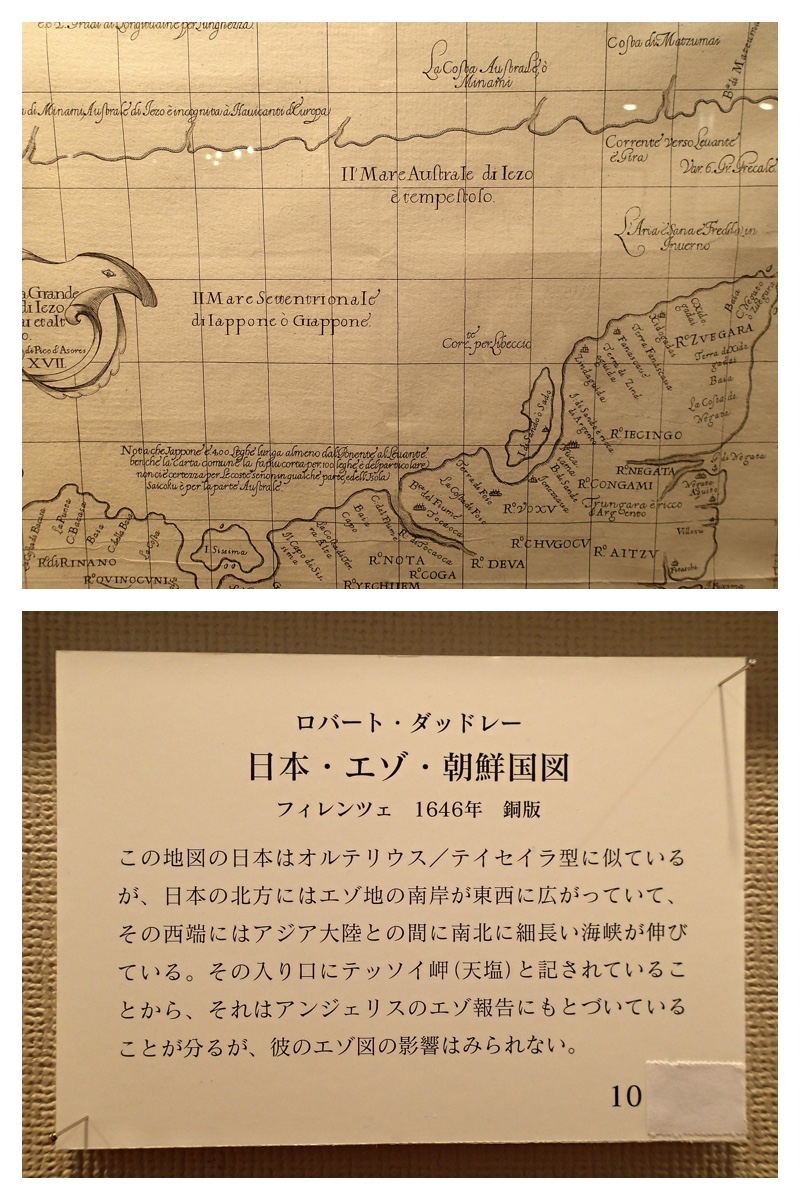 La Costa Australe ò
Minami
Costa di Matzumai
di Minami, Australe di Iezo è incognita à Nauicanti d'Europa
Corrente verso Leuante
è Gira
Var. 6. Gr. Grecale
Il Mare Australe di Iezo
è tempestoso.
L'Aria è Sana e Fredda in
Inuerno
a Grande
di Iezo
XVII
Il Mare Settentrionale
di Iappone ò Giappone.
Cor.te per Libeccio
I. di Sando ò Sado
R.º ZVEGARA
Baia
La Costa de
Negato
R.º IECINGO
R.º NEGATA
I. di Negato
R.º CONGAMI
Trungara è ricco
d'Argento
R.º VOXV
R.º CHVGOCV
R.º AITZV
Villosu
Nota che Iappone è 400 Leghe lunga almeno dal Ponente al Leuante
benche la Carta comune la fa piu corta per 100 leghe è del particolare
Saicoku è per la parte Australe.
La Punta
C. Bacasa
Baia
I. Sissima
Baia
Capo
La Costa di Foso
Tocaoca
R. di RINANO
R.º QVINOCVNI
R.º NOTA
R.º COGA
R.º DEVA
R.º YECHIIEM
ロバート・ダッドレー
日本・エゾ・朝鮮国図
フィレンツェ　1646年　銅版
この地図の日本はオルテリウス／テイセイラ型に似ている
が、日本の北方にはエゾ地の南岸が東西に広がっていて、
その西端にはアジア大陸との間に南北に細長い海峡が伸び
ている。その入り口にテッソイ岬(天塩)と記されているこ
とから、それはアンジェリスのエゾ報告にもとづいている
ことが分るが、彼のエゾ図の影響はみられない。
10